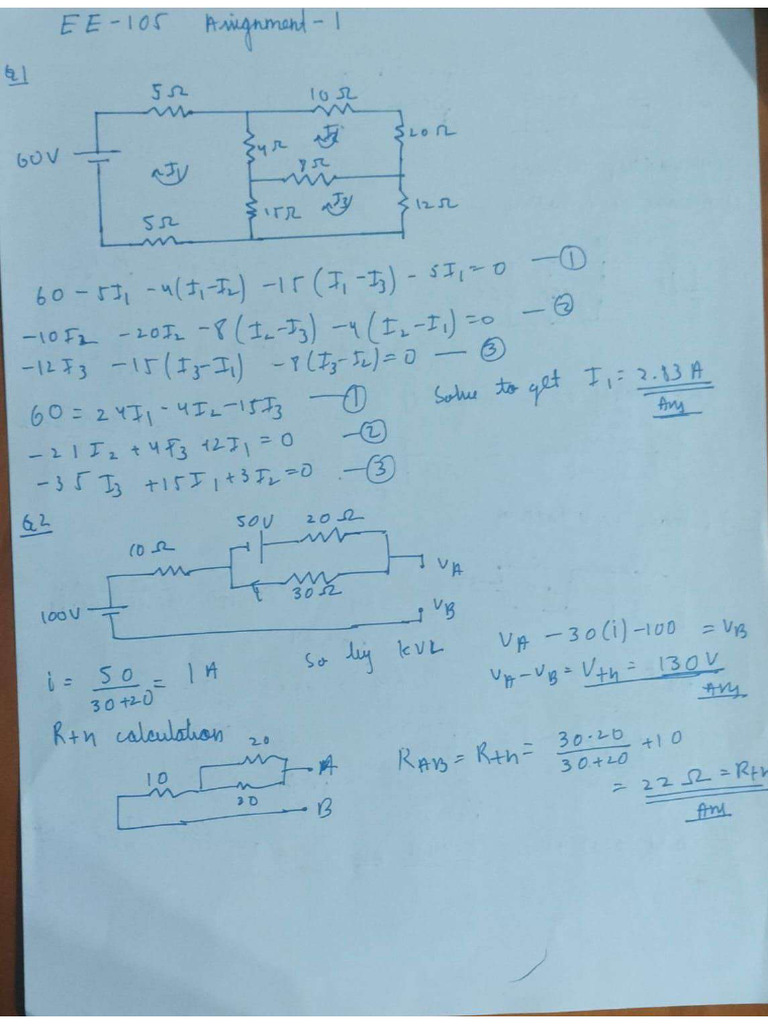 EE-105 Assignment-1
Q1
5Ω 10Ω
60V 4Ω I2 20Ω
I1 8Ω
15Ω I3 12Ω
5Ω
60 - 5I1 - 4(I1-I2) - 15(I1-I3) - 5I1 = 0 — ①
-10I2 - 20I2 - 8(I2-I3) - 4(I2-I1) = 0 — ②
-12I3 - 15(I3-I1) - 8(I3-I2) = 0 — ③
60 = 24I1 - 4I2 - 15I3 — ①
Solve to get I1 = 2.83 A
Ans
-21I2 + 4I3 + 2I1 = 0 — ②
-35I3 + 15I1 + 3I2 = 0 — ③
Q2
50V 20Ω
10Ω
30Ω VA
100V VB
i = 50/(30+20) = 1A
So by KVL
VA - 30(i) - 100 = VB
VA - VB = Vth = 130V
Ans
Rth calculation
20
10 A
30
B
RAB = Rth = 30·20/(30+20) + 10
= 22Ω = Rth
Ans